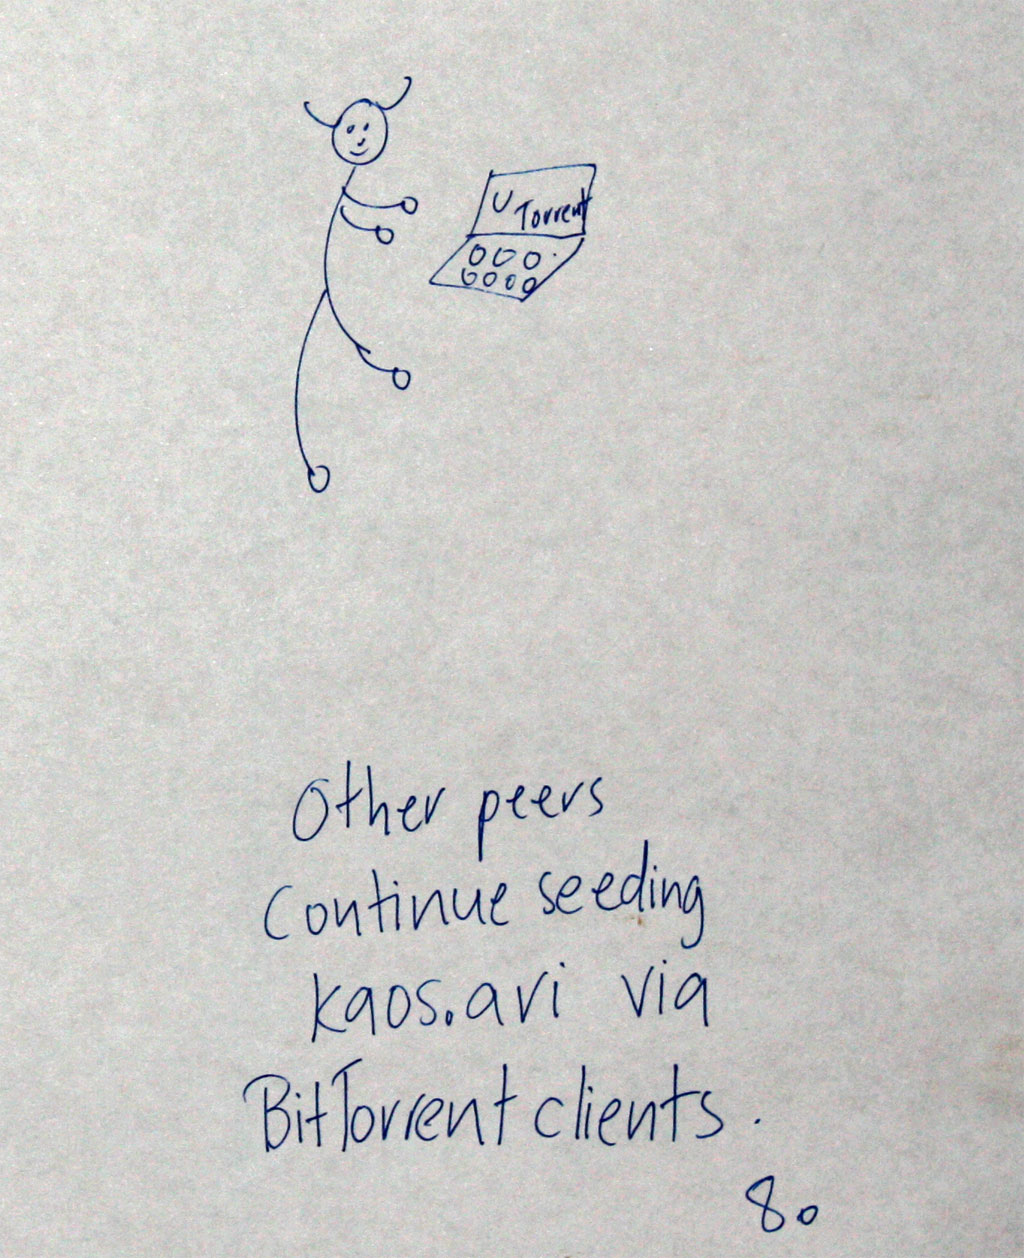 U
Torrent
Other peers
Continue seeding
kaos.avi via
BitTorrent clients.
8.